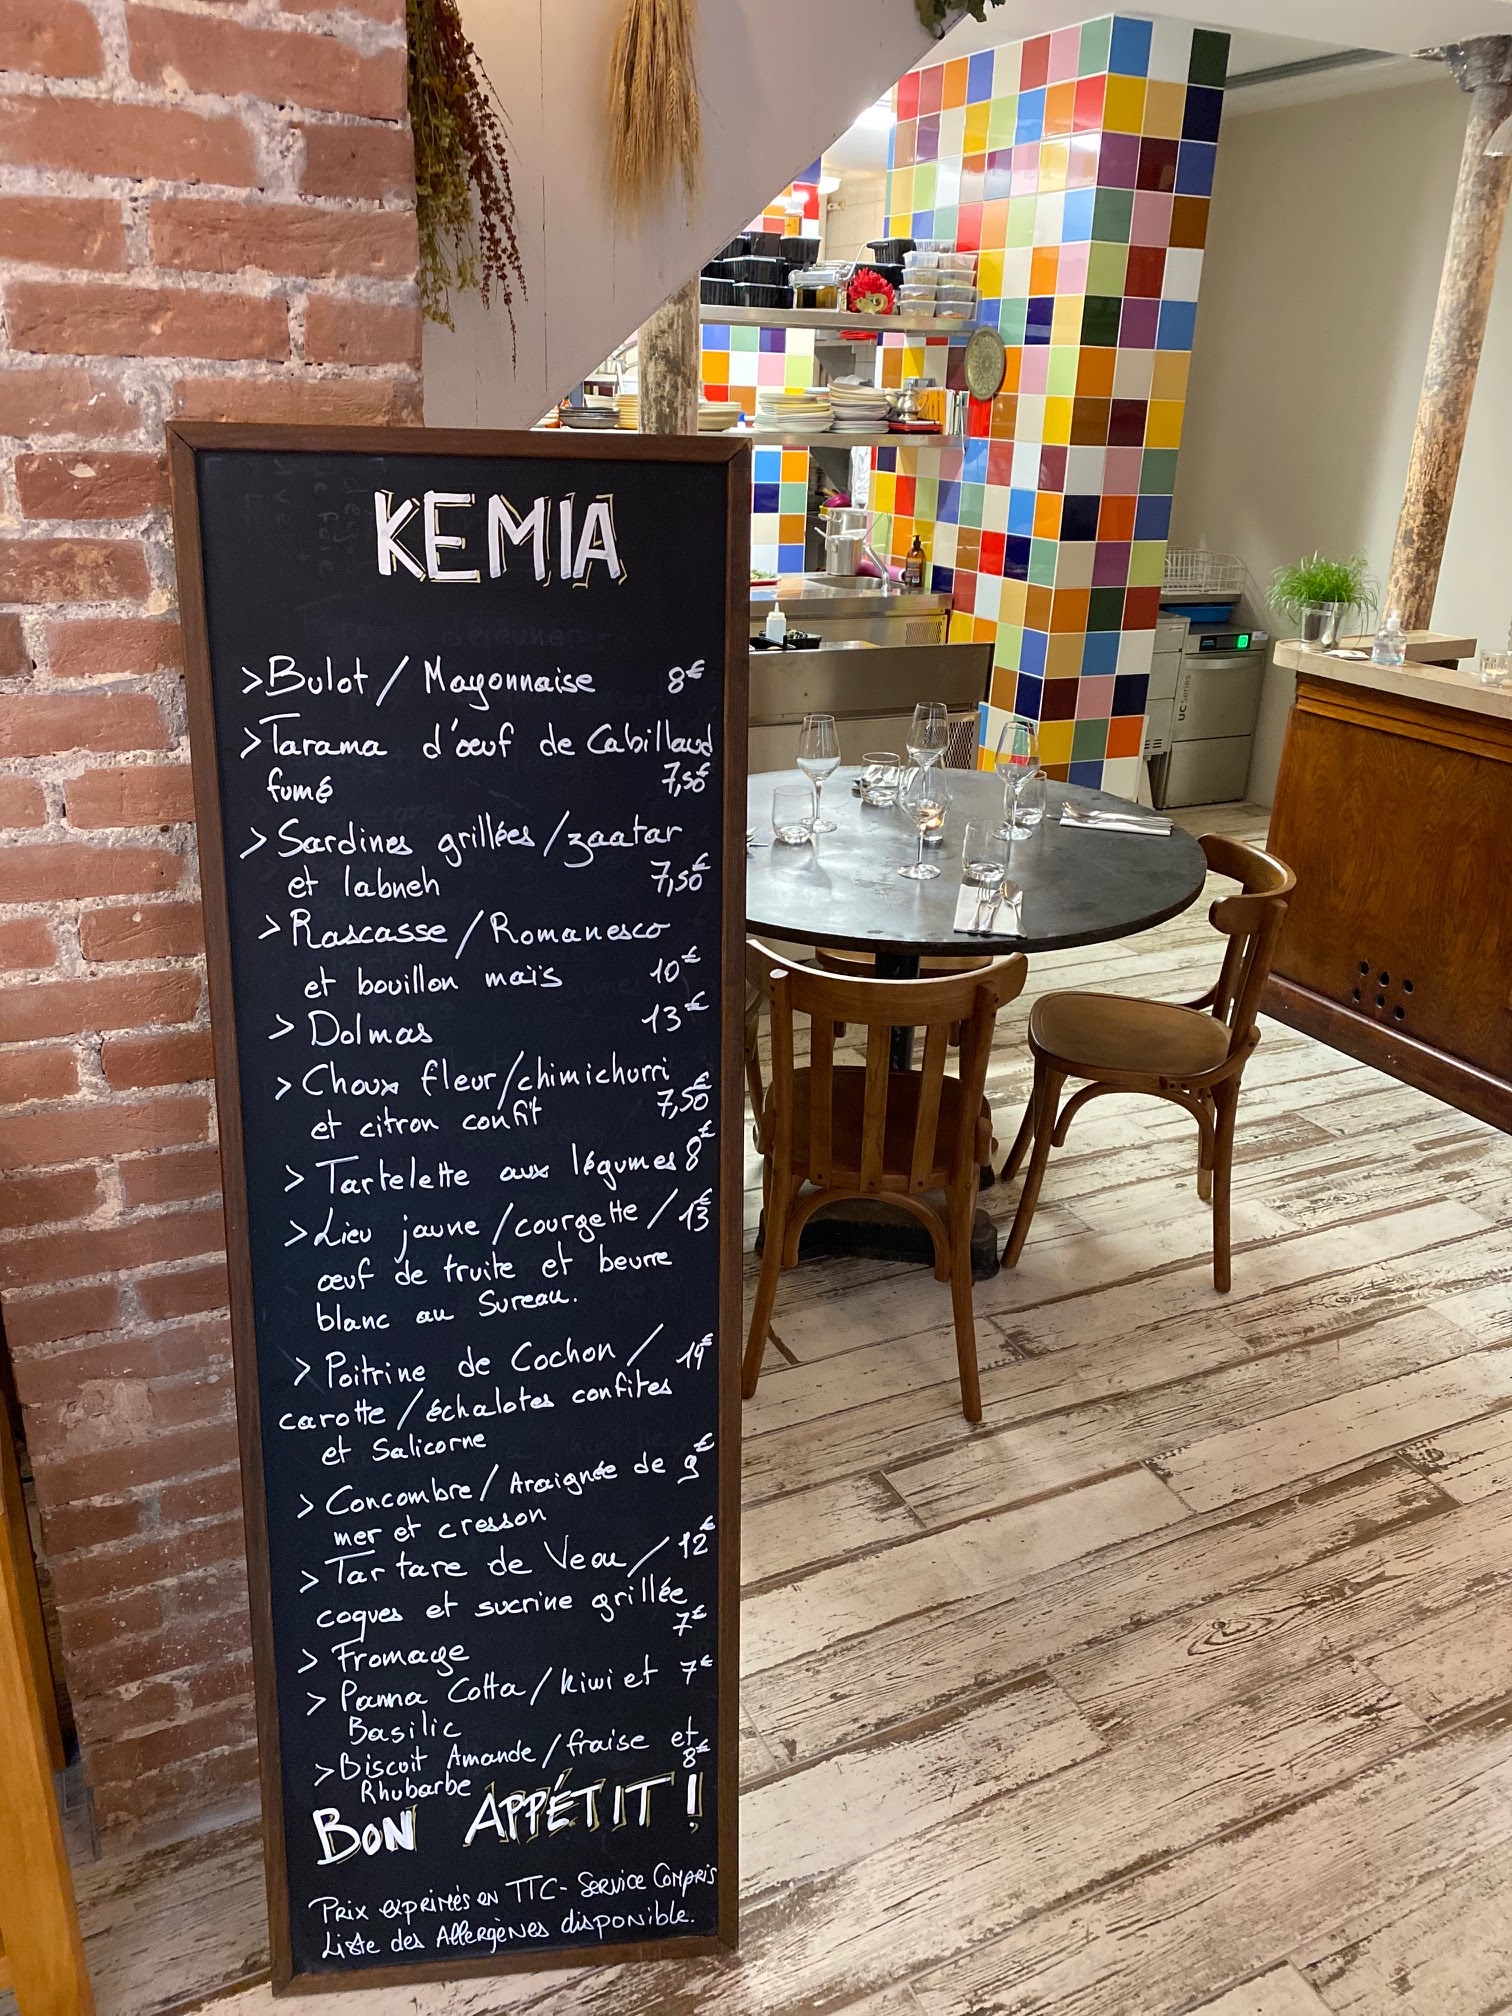 KEMIA
>Bulot / Mayonnaise 8€
>Tarama d'œuf de Cabillaud
fumé 7,50€
>Sardines grillées/zaatar
et labneh 7,50€
>Rascasse/Romanesco
et bouillon maïs 10€
>Dolmas 13€
>Choux fleur/chimichurri
et citron confit 7,50€
>Tartelette aux légumes 8€
>Lieu jaune/courgette/ 13€
œuf de truite et beurre
blanc au Sureau.
>Poitrine de Cochon/ 14€
carotte/échalotes confites
et Salicorne
>Concombre/Araignée de 9€
mer et cresson
>Tartare de Veau/ 12€
coques et sucrine grillée
>Fromage 7€
>Panna Cotta/kiwi et 7€
Basilic
>Biscuit Amande/fraise et
Rhubarbe 8€
BON APPÉTIT!
Prix exprimés en TTC - Service Compris
Liste des Allergènes disponible.
UC Series